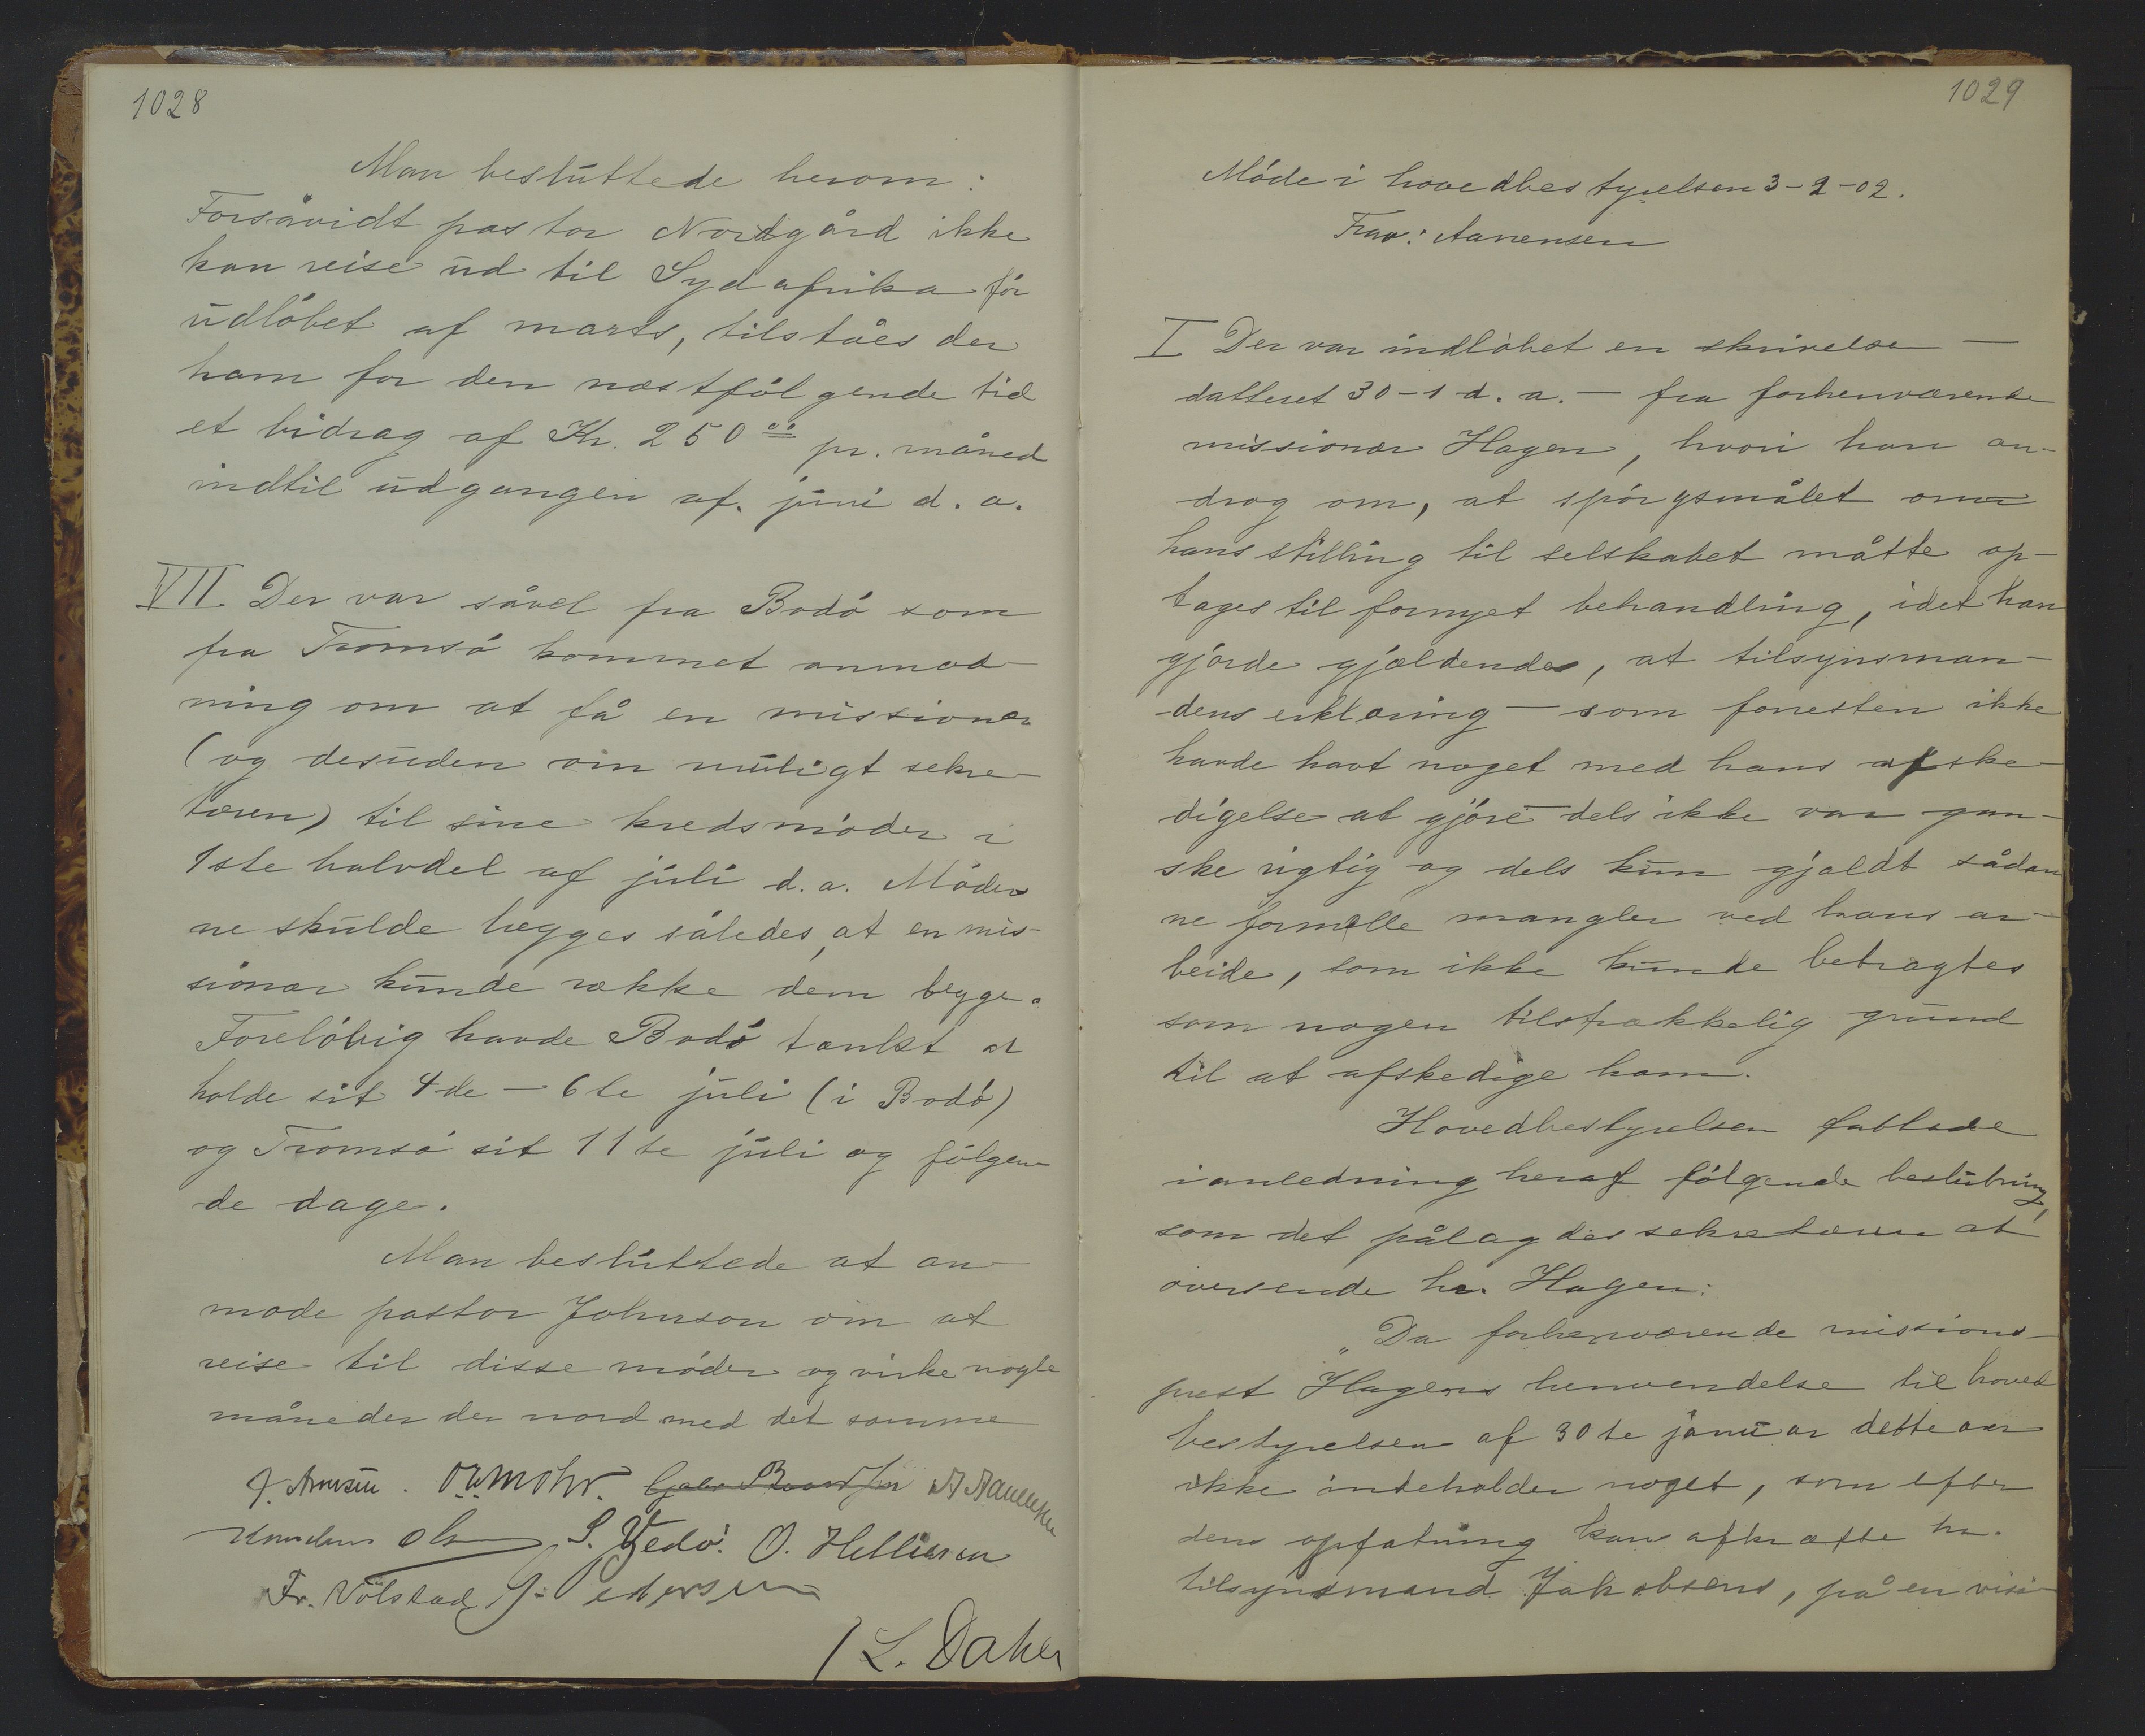 1028
Man besluttede herom:
Forsåvidt pastor Nordgård ikke
kan reise ud til Sydafrika før
udløbet af marts, tilståes der
ham for den næstfølgende tid
et bidrag af Kr. 250 00 pr. måned
indtil udgangen af juni d. a.
VII. Der var såvel fra Bodø som
fra Tromsø kommet anmod-
ning om at få en missionær
(og desuden om muligt sekre-
tæren) til sine kredsmøder i
1ste halvdel af juli d. a. Møder
ne skulde lægges således, at en mis-
sionær kunde række dem begge.
Foreløbig havde Bodø tænkt at
holde sit 4de – 6te juli (i Bodø)
og Tromsø sit 11te juli og følgen-
de dage.
Man besluttede at an-
mode pastor Johnson om at
reise til disse møder og virke nogle
måneder der nord med det samme
O. W. Mohr. A Aanensen
S. Vedø. O. Helliesen
Fr. Völstad, Pedersen
/ L. Dahle
1029
Møde i hovedbestyrelsen 3-2-02.
Frav: Aanensen
I Der var indløbet en skrivelse –
datteret 30-1 d. a. – fra forhenværende
missionær Hagen, hvori han an-
drog om, at spørgsmålet om
hans stilling til selskabet måtte op-
tages til fornyet behandling, idet han
gjorde gjældende, at tilsynsman-
dens erklæring – som foresten ikke
havde havt noget med hans afske-
digelse at gjøre – dels ikke var gan-
ske rigtig og dels kun gjaldt sådan
ne formelle mangler ved hans ar-
beide, som ikke kunde betragtes
som nogen tilstrækkelig grund
til at afskedige ham.
Hovedbestyrelsen fattede
i anledning heraf følgende beslutning,
som det pålagdes sekretæren at
oversende hr. Hagen:
„Da forhenværende missions-
prest Hagens henvendelse til hoved
bestyrelsen af 30te januar dette aar
ikke indeholder noget, som efter
dens opfatning kan afkræfte hr.
tilsynsmand Jakobsens, på en visi-